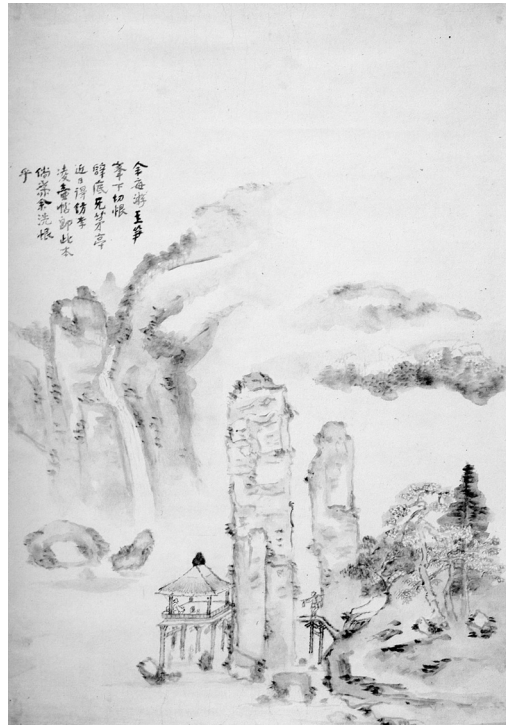 余每游玉筍
峯下切恨
壁底无茅亭
近日得仿李
凌壺帖卽此本
倘余洗恨
乎